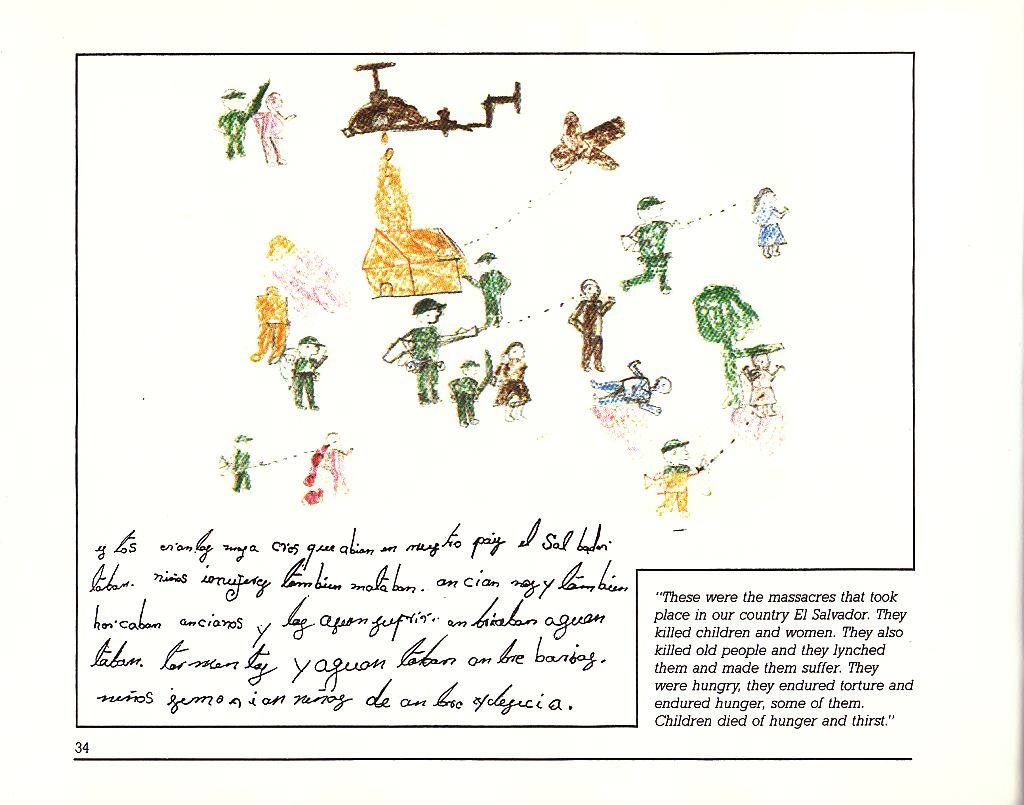 y los eran las masa cres que abian en nuestro pais el Salbador
taban. niños imujeres tambien mataban. an cian nos y tambien
horcaban ancianos y los asian sufrir. an briaban aguan
taban. tormentas y aguan taban an bre barias.
niños semorian niños de an bre y desicia.
"These were the massacres that took
place in our country El Salvador. They
killed children and women. They also
killed old people and they lynched
them and made them suffer. They
were hungry, they endured torture and
endured hunger, some of them.
Children died of hunger and thirst."
34